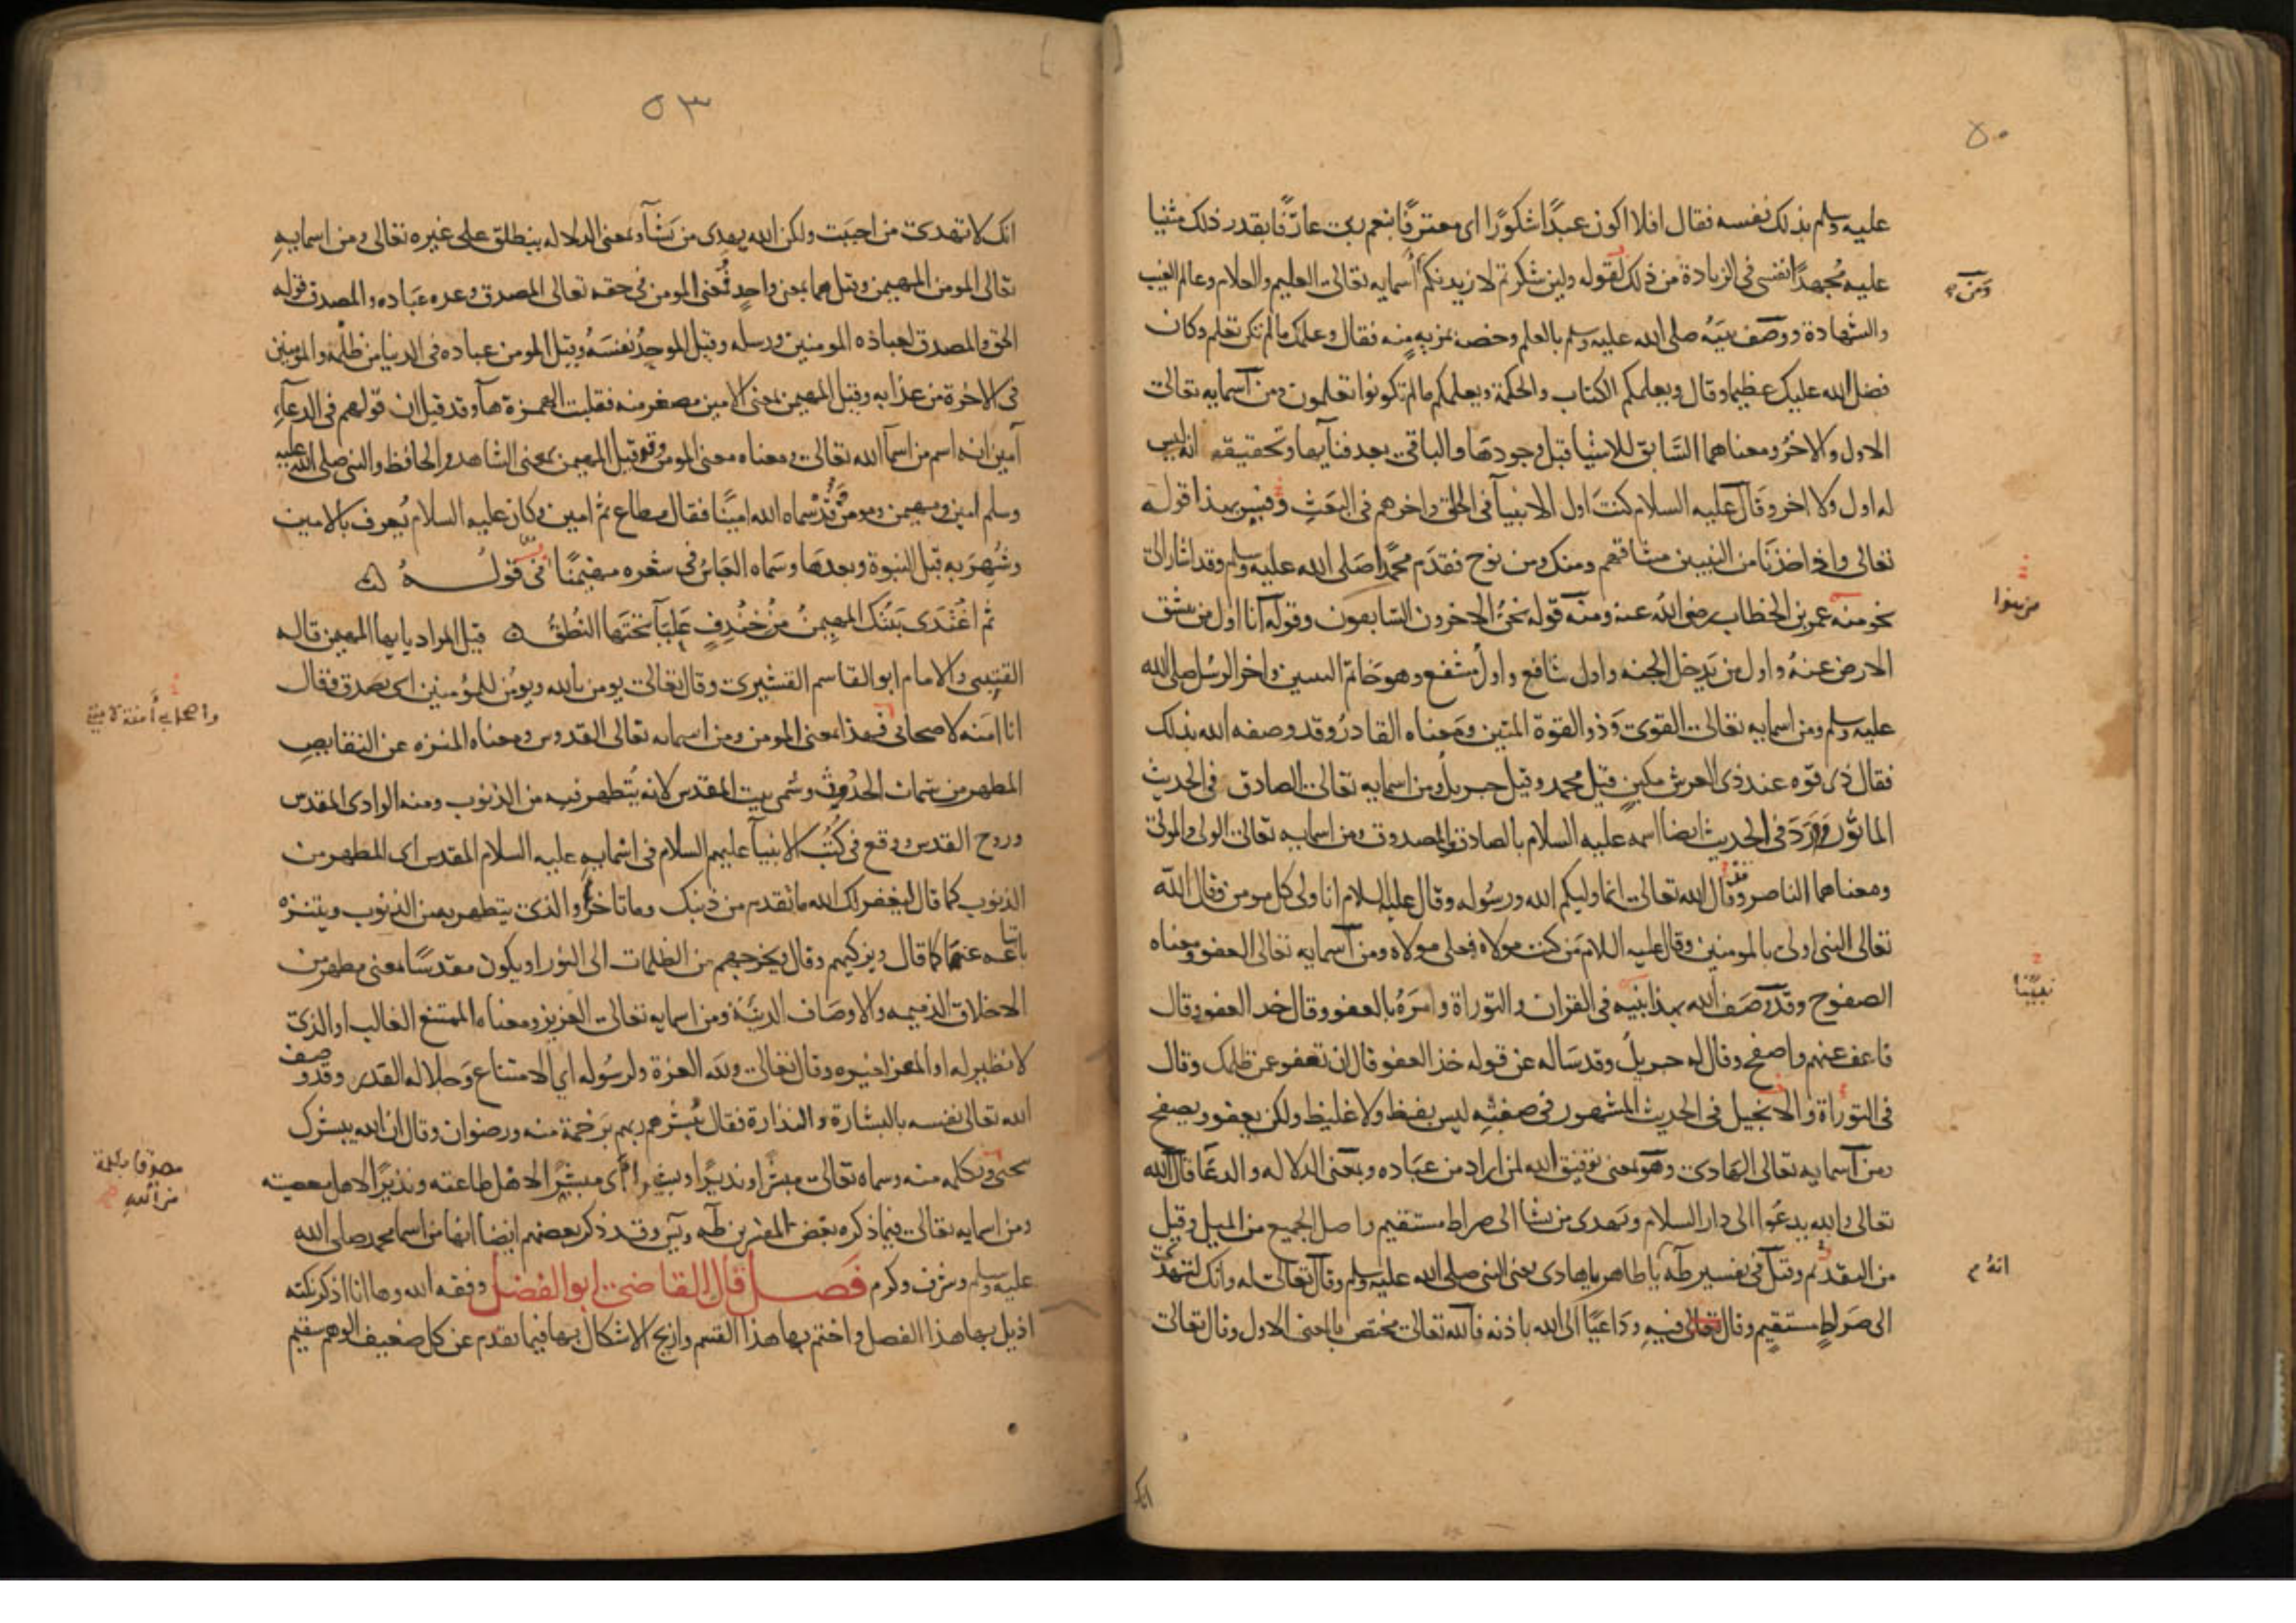 ٥٠
عليه وسلم بذلك نفسه فقال افلا اكون عبدًا شكورًا اى معترفًا بنعم ربى عارفًا بقدر ذلك مثنيا
عليه مُجهدًا نفسى فى الزيادة من ذلك لقوله ولين شكرتم لازيدنكم اسمايه تعالى العليم والعلام وعالم الغيب
ومن
والشهادة ووصف نبيه صلى الله عليه وسلم بالعلم وخصه بمزيه منه فقال وعلمك مالم تكن تعلم وكان
فضل الله عليك عظيما وقال ويعلمكم الكتاب والحكمة ويعلمكم مالم تكونوا تعلمون ومن اسمايه تعالى
الاول والاخر ومعناهما السَّابق للاشيا قبل وجودها والباقى بعد فنايها وتحقيقه انه ليس
له اول ولا اخر وقال عليه السلام كنت اول الانبيآ فى الخلق واخرهم فى البَعثِ وفسر بهذا قوله
تعالى واذ اخذنا من النبيين ميثاقهم ومنك ومن نوح فقدم محمدًا صَلى الله عليه وسلم وقد اشار الى
نحو منه عمر بن الخطاب رضى الله عنه ومنه قوله نحنُ الاخرون السابقون وقوله انا اول من تنشق
الارض عنهُ واول من يَدخل الجنه واول شافع واول مشفع وهو خاتم النبيين واخر الرسُل صلى الله
عليه وسلم ومن اسمايه تعالى القوى وَذو القوة المتين ومعناه القادرُ وقد وصفه الله بذلك
فقال ذى قوه عند ذى العرش مكين قيل محمد وقيل جبريل ومن اسمايه تعالى الصادق فى الحديث
الماثور وَوَرَدَ فى الحديث ايضا اسمه عليه السلام بالصادق المصدوق ومن اسمايه تعالى الولى والمولى
ومعناهما الناصر وقد قال الله تعالى انما وليكم الله ورسُوله وقال عليه السلام انا ولى كل مومن وقال الله
تعالى النبى اولى بالمومنين وقال عليه السلام مَن كنت مولاه فعلى مولاه ومن اسمايه تعالى العفو ومعناه
الصفوح وقد وَصَف الله بهذا نبيه فى القران والتوراة وامرَهُ بالعفو وقال خذ العفو وقال
نبينا
فاعف عنهم واصفح وقال له جبريل وقد سَاله عن قوله خذ العفو قال ان تعفو عمن ظلمك وقال
فى التوراة والانجيل فى الحديث المشهور فى صفتِه ليس بفظ ولا غليظ ولكن يعفو ويصفح
ومن اسمايه تعالى الهادى وهو بمعنى توفيق الله لمن اراد من عبَاده وبمعنى الدلاله والدعَا قال الله
تعالى والله يدعَوا الى دار السلام ويَهدى من نشا الى صراط مستقيم واصل الجميع من الميل وقيل
من التقديم وقيل فى تفسير طه يا طاهر يا هادى يعنى النبى صلى الله عليه وسلم وقال تعالى له وانك لتهدى
انه م
الى صَراطٍ مستقيم وقال تعالى فيه وَدَاعيًا الى الله باذنه فالله تعالى مختص بالمعنى الاول وقال تعالى
انك
٥٣
انك لا تهدى من احببَت ولكن الله يهدى من نَشَآ وبمعنى الدلاله ينطلق على غيره تعالى ومن اسمايه
تعالى المومن المهيمن وقيل هما بمعنى واحدٍ فمعنى المومن فى حقه تعالى المصدق وعده عبَاده والمصدق قوله
الحق والمصدق لعباده المومنين ورسله وقيل الموحِدُ نفسَهُ وقيل المومن عباده فى الدنيا من ظلمه والمومنين
فى الاخرة من عذابه وقيل المهيمن بمعنى الامين مصغر منه فقلبت الهمزة هآ وقد قيل ان قولهم فى الدعآء
آمين انه اسم من اسمآ الله تعالى ومعناه معنى المومن وقيل المهيمن بمعنى الشاهد والحافظ والنبى صلى الله عليه
وسلم امين ومهيمن ومومن قد سماه الله امينًا فقال مطاع ثم امين وكان عليه السلام يُعرف بالامين
وشُهِرَ به قبل النبوة وبعدها وسَماه العَباسُ فى شعره مهيمنًا فى قولــهُ
ثم اغتدى بَيتك المهيمنُ مِن خِندِفٍ عَليَآ تحتَها النُطقُ قيل المراد يا ايها المهيمن قاله
القتيبى والامام ابو القاسم القشيرى وقال تعالى يومن بالله ويومُن للمؤمنين اى يصدق فقال
انا امَنه لاصحابى فهذا بمعنى المومن ومن اسمايه تعالى القدوس ومعناه المنزه عن النقايص
المطهر من سَمات الحدُوث وسُمى بيت المقدس لانه يُتطهر فيه من الذنوب ومنه الوادى المقدس
وروح القدس ووقع فى كُتُب الانبيآ عليهم السلام فى اسمايه عليه السلام المقدس اى المطهر من
الذنوب كما قال ليغفر لك الله ما تقدم من ذنبك وما تاخر او الذى يتطهر به من الذنوب ويتنزه
باتباعه عنها كما قال ويزكيهم وقال ويخرجهم من الظلمات الى النور او يكون مقدسًا بمعنى مطهر من
الاخلاق الذميمه والاوصَاف الدنيَّة ومن اسمايه تعالى العزيز ومعناه الممتنع الغالب او الذى
لا نظير له او المعز لغيره وقال تعالى ولله العزة ولرسُوله اي الامتناع وَجلاله القدر وقد وصف
الله تعالى نفسه بالبشارة والنذارة فقال يُبشرهم ربهم بَرحمة منه ورضوان وقال ان الله يبشرك
بيحيى وبكلمه منه وسماه تعالى مبشرًا ونذيرًا وبشيرا اى مبشرًا لاهل طاعته ونذيرًا لاهل معصيته
مصدقا بكلمة
من الله
ومن اسمايه تعالى فيما ذكره بعَض المفسرين طه ويَس وقد ذكر بعضهم ايضا انها من اسما محمد صلى الله
عليه وسلم وشرف وكرم فصـل قال القاضى ابو الفضل وفقه الله وها انا اذكر نكته
اذيل بها هذا الفصل واختم بها هذا القسم وازيح الاشكال بها فيما تقدم عن كل ضعيف الوهم سقيم